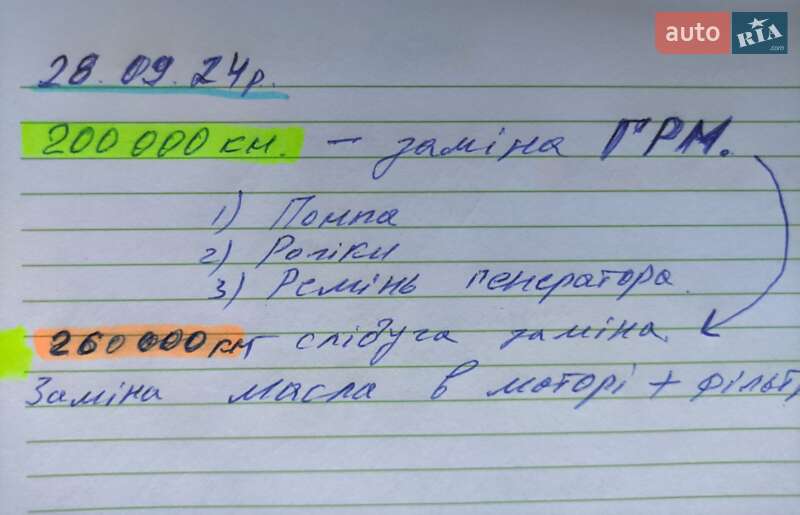 auto RIA .com
28.09.24р.
200 000 км. - заміна ГРМ.
1) Помпа
2) Роліки
3) Ремінь генератора.
260 000 км слідуча заміна.
Заміна масла в моторі + фільтр